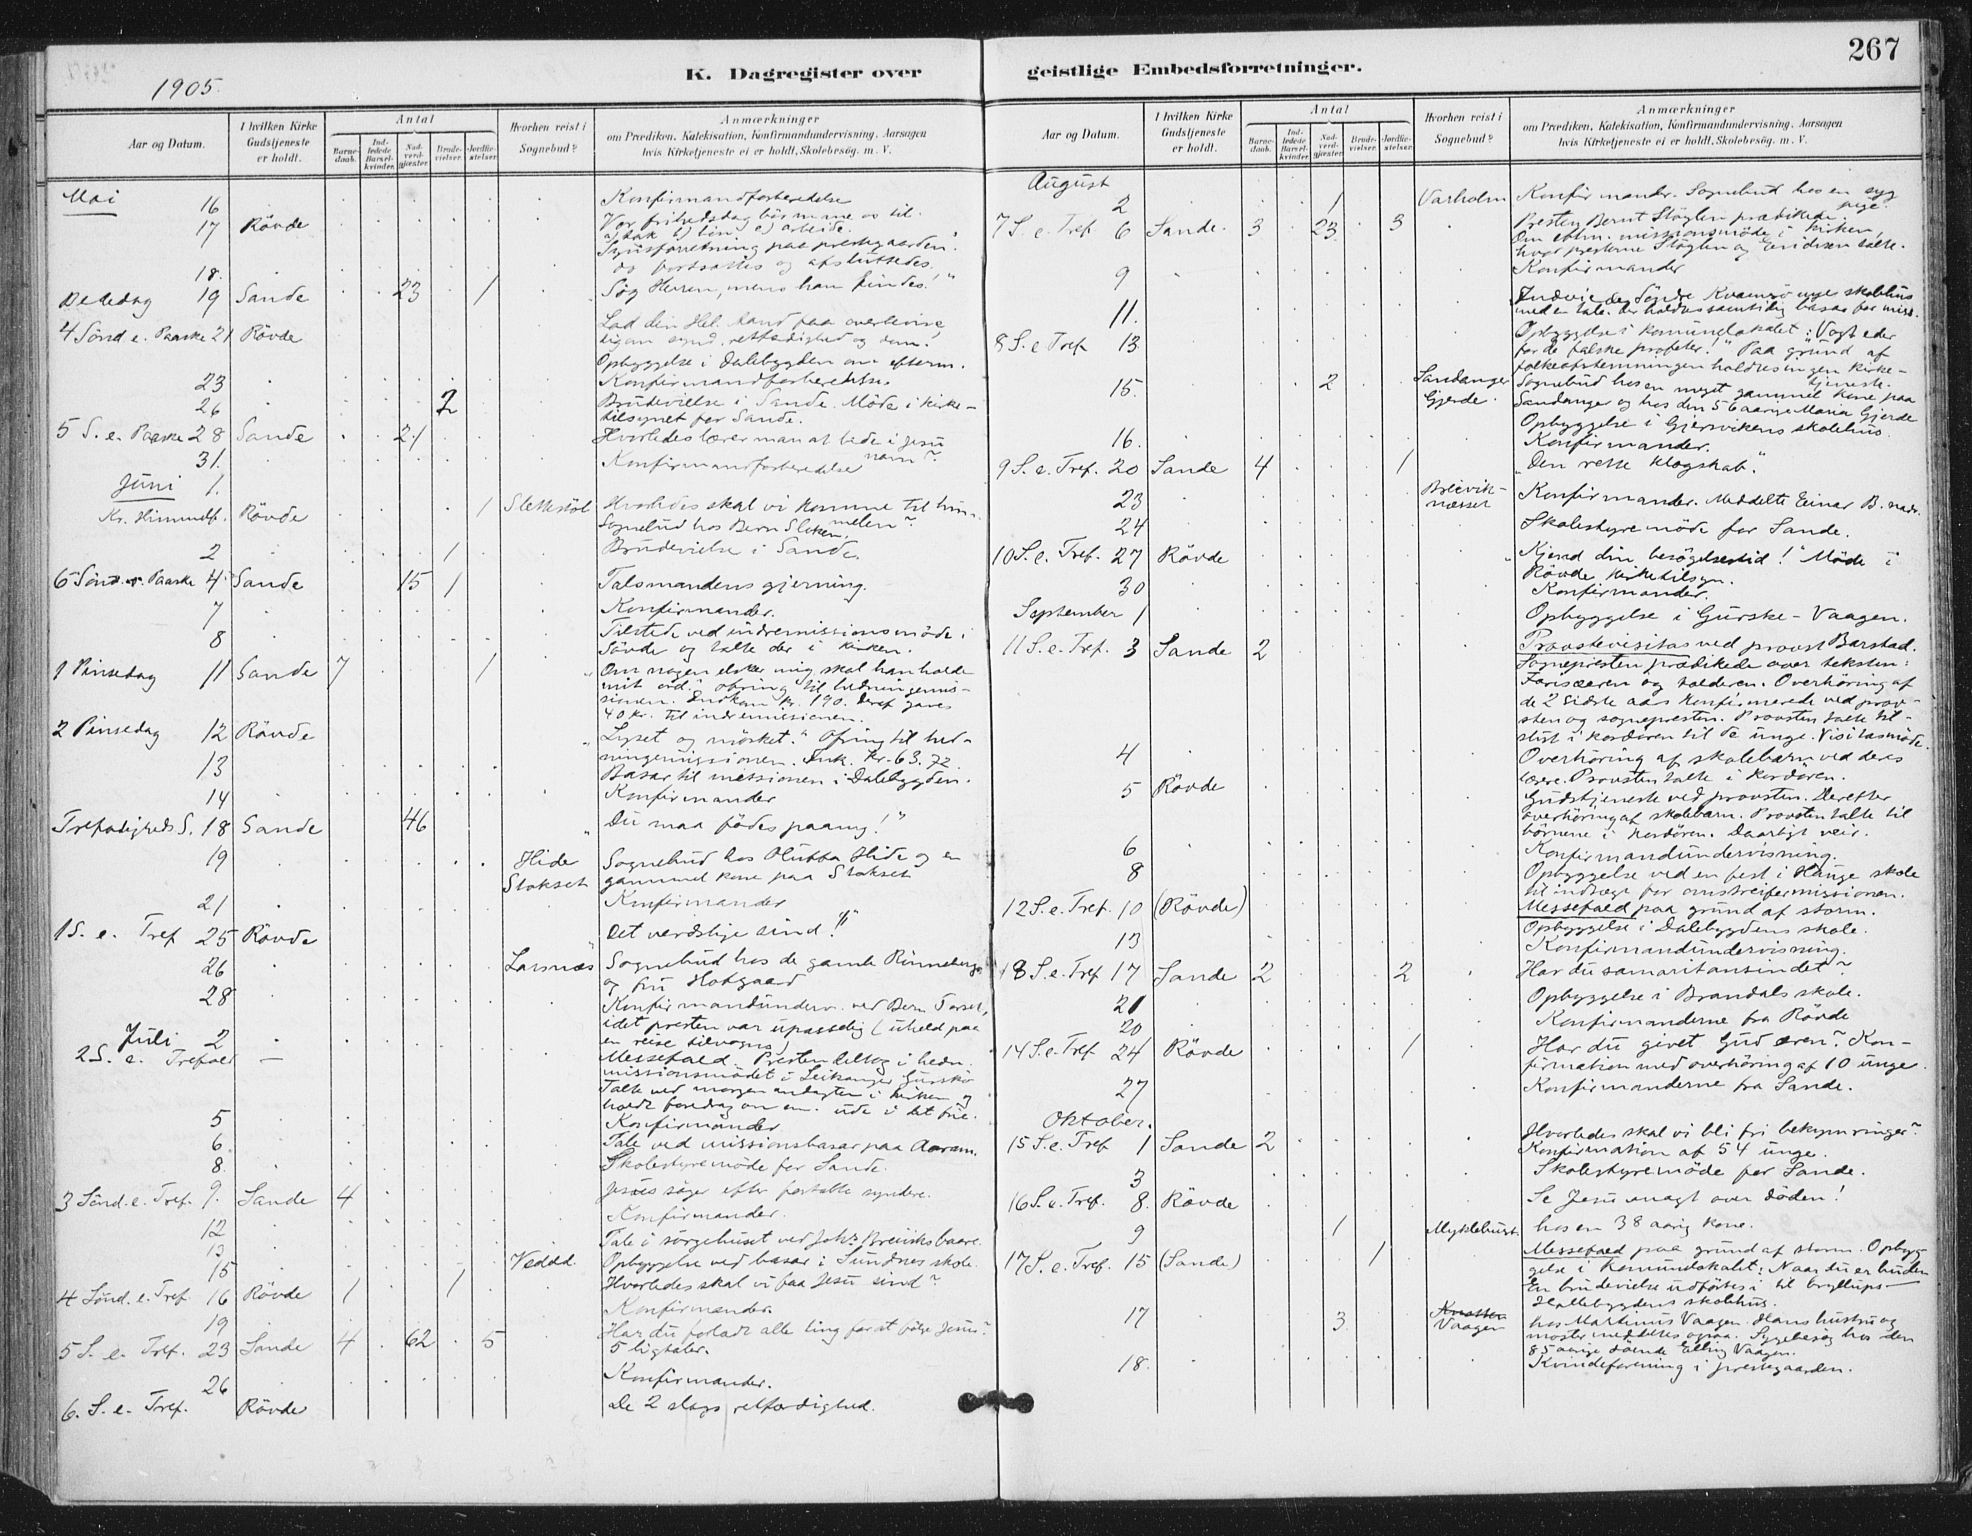 267
1905.
K. Dagregister over geistlige Embedsforretninger.
Aar og Datum.
I hvilken Kirke Gudstjeneste er holdt.
Antal
Barnedaab.
Indledede Barselkvinder.
Nadverdgjester.
Brudevielser.
Jordfæstelser.
Hvorhen reist i Sognebud?
Anmærkninger
om Prædiken, Katekisation, Konfirmandundervisning, Aarsagen
hvis Kirketjeneste ei er holdt, Skolebesøg. m. V.
Mai 16 Konfirmandforberedelse
17 Rövde Vor frihedsdag
a) tak b) bön c) arbeide.
paa prestegaarden.
18. og fortsattes og afsluttedes.
Bededag 19 Sande 23 1 "Søg Herren, mens han findes!"
4 Sönd e. Paaske 21 Rövde Lad den Hel. Aand faa overbevise
synd, retfærdighed og dom.
Opbyggelse i Dalebygden om efterm.
23 Konfirmandforberedelse.
26 2 Brudevielse i Sande. Möde i kirke-
tilsynet for Sande.
5 S. e. Paaske 28 Sande 21 Hvorledes lærer man at bede i Jesu
navn?
31. Konfirmandforberedelse
Juni 1.
Kr. Himmelf. Rövde 1 Slettestöl Hvorledes skal vi komme til him-
melen?
Sognebud hos Bern
2 1 Brudevielse i Sande.
6 Sönd. e. Paaske 4 Sande 15 1 Talsmandens gjerning.
7 Konfirmander.
8 Tilstede ved indremissionsmöde i
Sövde og talte der i kirken.
1 Pinsedag 11 Sande 7 1 "Om nogen elsker mig, skal han holde
mit ord." ofring til hedningemis-
sionen. Indkom kr. 190. Deraf gaves
40 kr. til indremissionen.
2 Pinsedag 12 Rövde "Lyset og mörket." Ofring til hed-
ningemissionen. Ink. kr. 63.72.
13 Basar til missionen i Dalebygden.
14 Konfirmander
Trefoldigheds S. 18 Sande 46 "Du maa födes paany!"
19 Hide Sognebud hos Hide og en
Stokset gammel kone paa Stokset
21 Konfirmander
1 S. e. Tref 25 Rövde Det verdslige sind!
26 Larsnæs Sognebud hos de gamle
og fru Hofgaard
28 Konfirmandunderv. ved Bern
idet presten var upasselig (uheld paa
en reise tilvogns)
Juli 2
2 S. e. Trefold — Messefald. Presten deltog i hedn.
missionsmödet i Leikanger Gurskö
Talte ved morgenandagten i kirken og
holdt foredrag om em. ude i det frie.
5 Konfirmander
6. Tale ved missionsbasar paa Aaram.
8. Skolestyremöde for Sande.
3 Sönd. e. Tref. 9. Sande 4 Jesus söger efter fortabte syndere.
12 Konfirmander.
13 Tale i sörgehuset ved Johs Breiviks baare.
15 Vedde Opbyggelse ved basar i Sundnes skole.
4 Sönd. e. Tref. 16 Rövde 1 1 Hvorledes skal vi faa Jesu sind?
19 Konfirmander
5 S. e. Tref. 23 Sande 4 62 5 Har du forladt alle ting for at fölge Jesus?
5 ligtaler.
26 Konfirmander.
6. S. e. Tref. Rövde De 2 slags retfærdighed.
Aar og Datum.
I hvilken Kirke Gudstjeneste er holdt.
Antal
Barnedaab.
Indledede Barselkvinder.
Nadverdgjester.
Brudevielser.
Jordfæstelser.
Hvorhen reist i Sognebud?
Anmærkninger
om Prædiken, Katekisation, Konfirmandundervisning, Aarsagen
hvis Kirketjeneste ei er holdt, Skolebesøg. m. V.
August
2 1 Varholm Konfirmander. Sognebud hos en syg
pige.
7 S. e. Tref 6 Sande. 3 23 3 Presten Bernt Stöylen prædikede.
Om eftm. missionsmöde i kirken,
hvor presterne Stöylen og talte.
9 Konfirmander
11. Söndre Kvamsö nye skolehus
med en tale. Der holdtes samtidig basar for miss.
8 S. e Tref 13. Opbyggelse i komunelokalet: "Vogt eder
for de falske profeter!" Paa grund af
folkeafstemningen holdtes ingen kirke-
tjeneste.
15. 2 Sandanger Sognebud hos en meget gammel kone paa
Gjerde. Sandanger og hos den 56 aarige Maria Gjerde
16. Opbyggelse i Gjersvikens skolehus.
Konfirmander.
9 S. e. Tref. 20 Sande 4 1 "Den rette klogskab."
23 Breivik-
næsset Konfirmander. Meddelte Einar B. nadv.
24 Skolestyremöde for Sande.
10 S. e. Tref. 27 Rövde "Kjend din besögelsestid!" Möde i
Rövde kirketilsyn.
30 Konfirmander.
September 1 Opbyggelse i Gurske-Vaagen.
11 S. e. Tref. 3 Sande 2 Provstevisitas ved provst Barstad.
Sognepresten prædikede over teksten:
Farisæeren og tolderen. Overhöring af
de 2 sidste aars konfirmerede ved prov-
sten og sognepresten. Provsten talte til-
slut i kordören til de unge. Visitasmöde.
4 Overhöring af skolebarn ved deres
lærere. Provsten talte i kordören.
5 Rövde Gudstjeneste ved provsten. Derefter
overhöring af skolebarn. Provsten talte til
börnene i kordören. Daarligt veir.
6 Konfirmandundervisning.
8 Opbyggelse ved en fest i Hauge skole
til indtægt for omstreifermissionen.
12 S. e. Tref. 10 (Rövde) Messefald paa grund af storm.
Opbyggelse i Dalebygdens skole.
13 Konfirmandundervisning.
18 S. e. Tref 17 Sande 2 2 Har du samaritansindet?
21 Opbyggelse i Brandals skole.
20 Konfirmanderne fra Rövde
14 S. e. Tref 24 Rövde 1 Har du givet Gud æren? Kon-
firmation med overhöring af 10 unge.
27 Konfirmanderne fra Sande.
Oktober.
15 S. e. Tref 1 Sande 2 Hvorledes skal vi bli fri bekymringer?
Konfirmation af 54 unge.
3 Skolestyremöde for Sande.
16 S. e. Tref. 8. Rövde Se Jesu magt over döden!
9 1 Myklebust. hos en 38 aarig kone.
17 S. e. Tref. 15 (Sande) 1 Messefald paa grund af storm. Opbyg-
gelse i komunelokalet; Naar du er buden
En brudevielse udförtes i til bryllups—
Hallebygdens skolehus.
17 3 Vaagen hos Martinus Vaagen. Hans hustru og
moster meddeltes ogsaa. Sygebesög hos den
85 aarige döende Elling Vaagen.
18. Kvindeforening i prestegaarden.